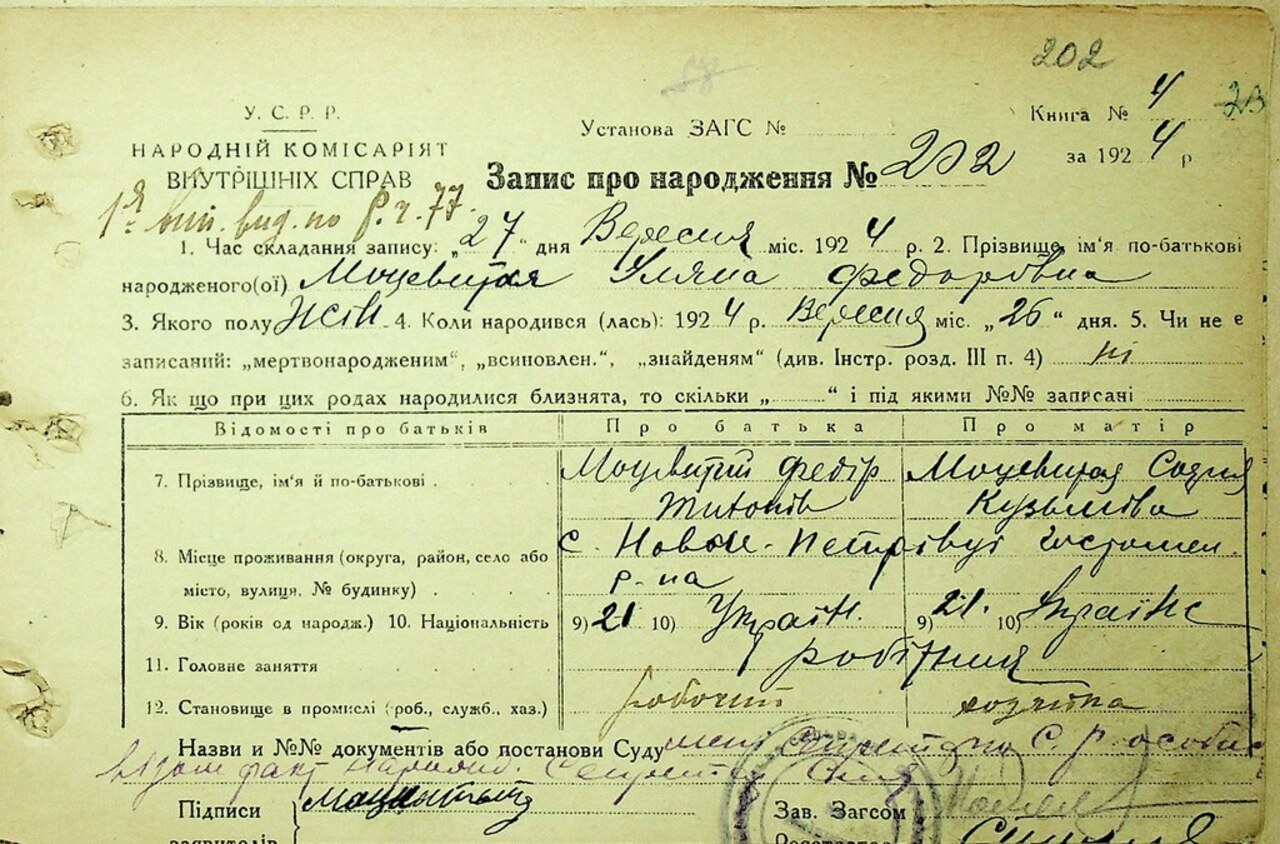 202
У. С. Р. Р.
НАРОДНІЙ КОМІСАРІЯТ
ВНУТРІШНІХ СПРАВ
Установа ЗАГС №
Книга № 4
за 1924 р
Запис про народження № 202
1. Час складання запису: „27" дня Вересня міс. 1924 р. 2. Прізвище, ім'я по-батькові
народженого(ої) Моцевитая Уляна Федоровна
3. Якого полу Жін. 4. Коли народився (лась): 1924 р. Вересня міс. „26" дня. 5. Чи не є
записаний: „мертвонародженим", „всиновлен.", „знайденям" (див. Інстр. розд. III п. 4) ні
6. Як що при цих родах народилися близнята, то скільки „ " і під якими №№ записані
Відомості про батьків Про батька Про матір
7. Прізвище, ім'я й по-батькові . Моцевитий Федір Моцевитая Софія
Кузьмівна
8. Місце проживання (округа, район, село або с. Нових-Петрівці Гостомел.
місто, вулиця, № будинку) . . . . р-на
9. Вік (років од народж.) 10. Національність 9) 21 10) Україн. 9) 21. 10) Українс
11. Головне заняття
12. Становище в промислі (роб., служб., хаз.) робочий хозяйка
Назви и №№ документів або постанови Суду
факт
Підписи
заявителів
Зав. Загсом